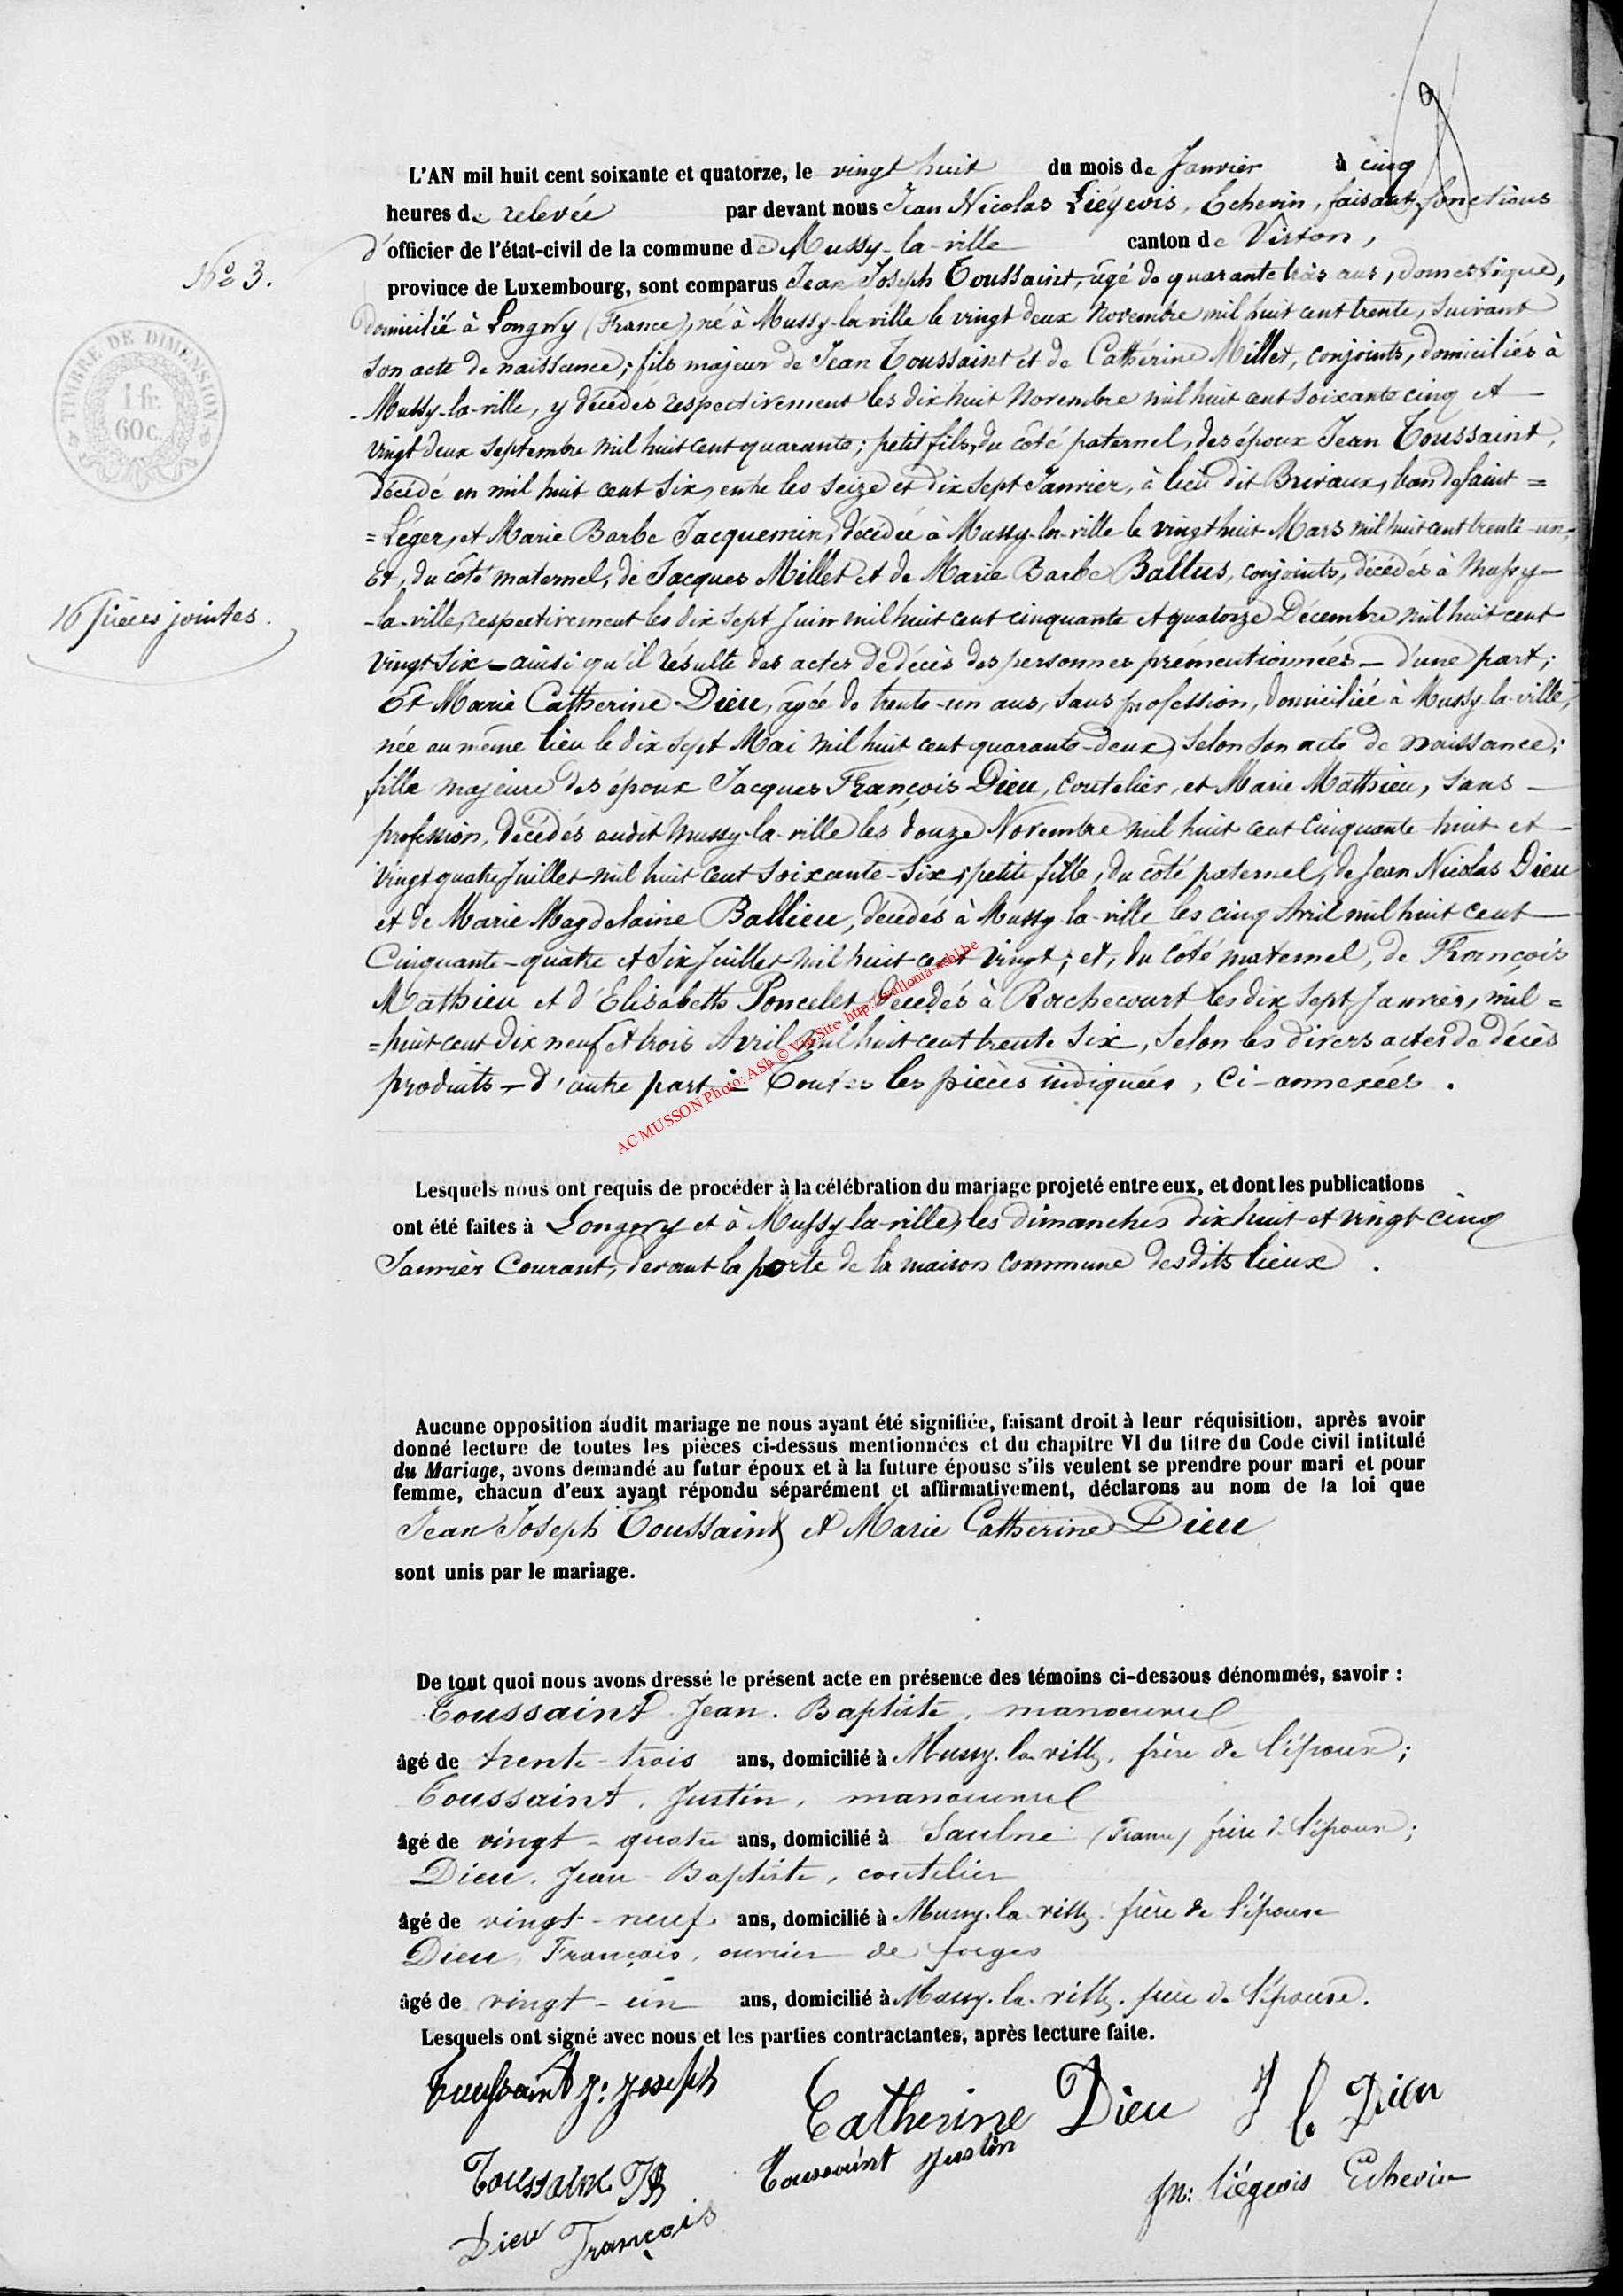 9
L'AN mil huit cent soixante et quatorze, le vingt huit du mois de Janvier à cinq
heures de relevée par devant nous Jean Nicolas Liégeois, Echevin, faisant fonctions
d'officier de l'état-civil de la commune de Mussy-la-ville canton de Virton,
N° 3.
province de Luxembourg, sont comparus Jean Joseph Toussaint, âgé de quarante trois ans, domestique,
domicilié à Longwy (France), né à Mussy-la-ville le vingt deux Novembre mil huit cent trente, suivant
TIMBRE DE DIMENSION
1 fr.
60c.
son acte de naissance; fils majeur de Jean Toussaint et de Cathérine Millet, conjoints, domiciliés à
Mussy-la-ville, y décédés respectivement les dix huit Novembre mil huit cent soixante cinq et
vingt deux septembre mil huit cent quarante; petit fils, du côté paternel, des époux Jean Toussaint,
décédé en mil huit cent six, entre les seize et dix sept Janvier, à lieu dit Brivaux, ban de saint =
= Léger, et Marie Barbe Jacquemin, décédée à Mussy-la-ville le vingt huit Mars mil huit cent trente-un,
Et, du côté maternel, de Jacques Millet et de Marie Barbe Ballus, conjoints, décédés à Mussy-
-la-ville, respectivement les dix sept Juin mil huit cent cinquante et quatorze Décembre mil huit cent
16 pièces jointes.
vingt six - ainsi qu'il résulte des actes de décès des personnes prémentionnées - d'une part;
Et Marie Catherine Dieu, âgée de trente-un ans, sans profession, domiciliée à Mussy-la-ville,
née au même lieu le dix sept Mai mil huit cent quarante-deux, selon son acte de naissance;
fille majeure des époux Jacques François Dieu, coutelier, et Marie Mathieu, sans
profession, décédés audit Mussy-la-ville les douze Novembre mil huit cent cinquante-huit et
vingt quatre Juillet mil huit cent soixante-six; petite fille, du côté paternel, de Jean Nicolas Dieu
et de Marie Magdelaine Ballieu, décédés à Mussy-la-ville les cinq Avril mil huit cent
Cinquante-quatre et six Juillet mil huit cent vingt; et, du côté maternel, de François
Mathieu et d'Elisabeth Poncelet, décédés à Rachecourt les dix sept Janvier, mil =
= huit cent dix neuf et trois Avril mil huit cent trente six, selon les divers actes de décès
produits - d'autre part :- Toutes les pièces indiquées, ci-annexées.
AC MUSSON Photo: ASh © Via Site http://wallonia-asbl.be
Lesquels nous ont requis de procéder à la célébration du mariage projeté entre eux, et dont les publications
ont été faites à Longwy et à Mussy-la-ville, les dimanches dix huit et vingt-cinq
Janvier Courant, devant la porte de la maison commune desdits lieux.
Aucune opposition audit mariage ne nous ayant été signifiée, faisant droit à leur réquisition, après avoir
donné lecture de toutes les pièces ci-dessus mentionnées et du chapitre VI du titre du Code civil intitulé
du Mariage, avons demandé au futur époux et à la future épouse s'ils veulent se prendre pour mari et pour
femme, chacun d'eux ayant répondu séparément et affirmativement, déclarons au nom de la loi que
Jean Joseph Toussaint et Marie Catherine Dieu
sont unis par le mariage.
De tout quoi nous avons dressé le présent acte en présence des témoins ci-dessous dénommés, savoir :
Toussaint Jean. Baptiste, manoeuvre
âgé de trente-trois ans, domicilié à Mussy.la.ville, frère de l'époux;
Toussaint, Justin, manoeuvre
âgé de vingt-quatre ans, domicilié à Saulne (France) frère de l'époux;
Dieu. Jean Baptiste, coutelier
âgé de vingt-neuf ans, domicilié à Mussy.la.ville. frère de l'épouse
Dieu, François, ouvrier de forges
âgé de vingt-un ans, domicilié à Mussy.la.ville. frère de l'épouse.
Lesquels ont signé avec nous et les parties contractantes, après lecture faite.
Toussaint J. Joseph
Catherine Dieu J b Dieu
Toussaint JB Toussaint Justin
Jn: Liégeois Echevin
Dieu François